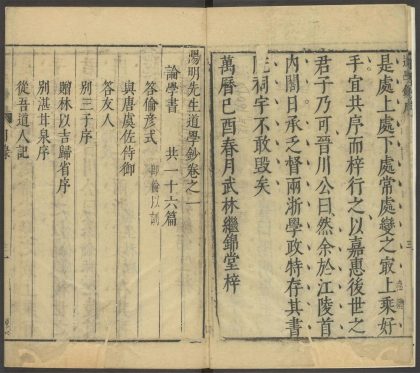 是處上處下處常處變之寂上乘好
手宜共序而梓行之以嘉惠後世之
君子乃可晉川公曰然余於江陵首
內閣日承乏督兩浙學政特存其書
院祠宇不敢毀矣
萬曆己酉春月武林繼錦堂梓
陽明先生道學鈔卷之一
論學書 共一十六篇
答倫彥式 即倫以訓
與唐虞佐侍御
答友人
別三子序
贈林以吉歸省序
別湛甘泉序
從吾道人記